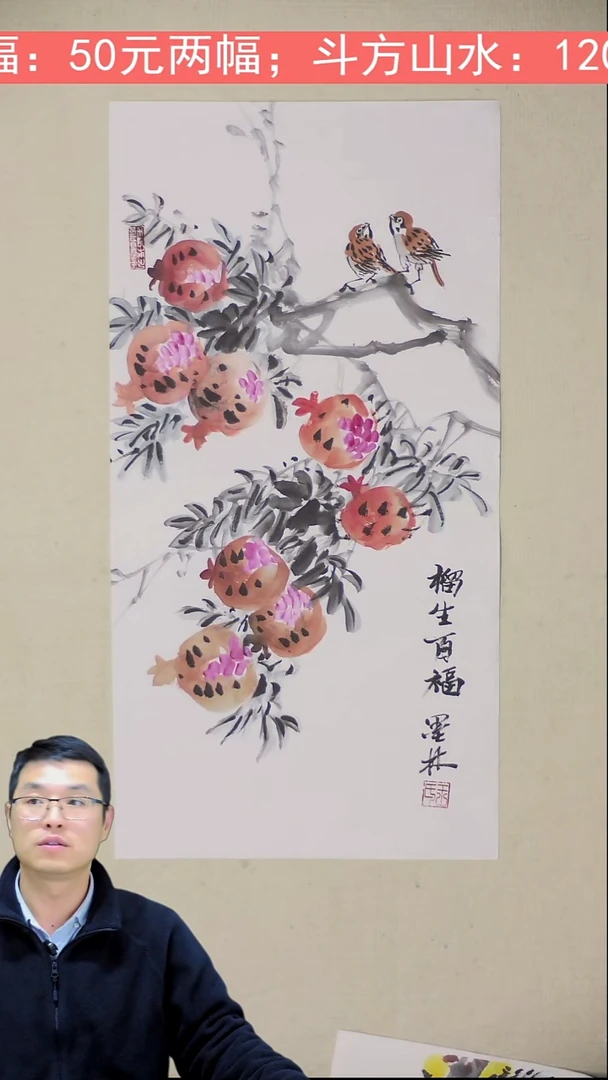 福：50元两幅；斗方山水：120
榴生百福
墨林